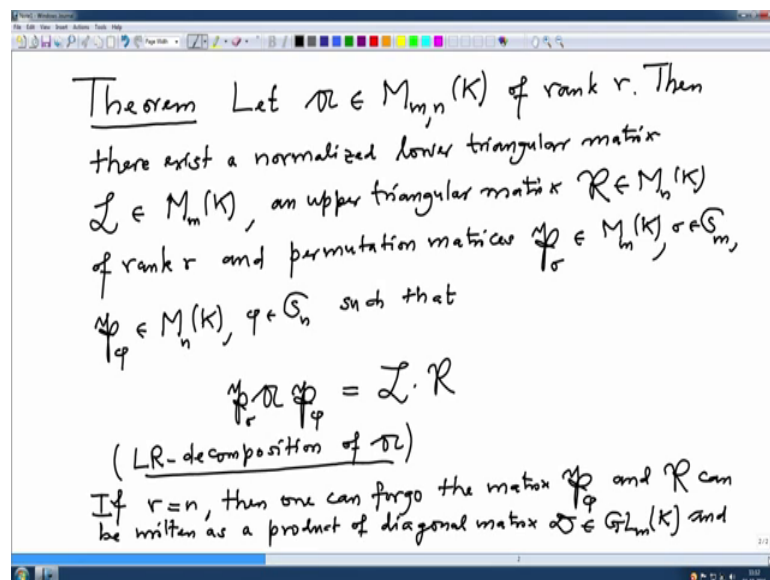 Note1 - Windows Journal
File Edit View Insert Actions Tools Help
Page Width
Theorem Let 𝔄 ∈ M_{m,n}(K) of rank r. Then
there exist a normalized lower triangular matrix
ℒ ∈ M_m(K), an upper triangular matrix ℛ ∈ M_n(K)
of rank r and permutation matrices 𝔓_σ ∈ M_m(K), σ∈𝔖_m,
𝔓_φ ∈ M_n(K), φ∈𝔖_n such that
𝔓_σ 𝔄 𝔓_φ = ℒ · ℛ
(LR-decomposition of 𝔄)
If r=n, then one can forgo the matrix 𝔓_φ and ℛ can
be written as a product of diagonal matrix 𝔇 ∈ GL_m(K) and
2/2